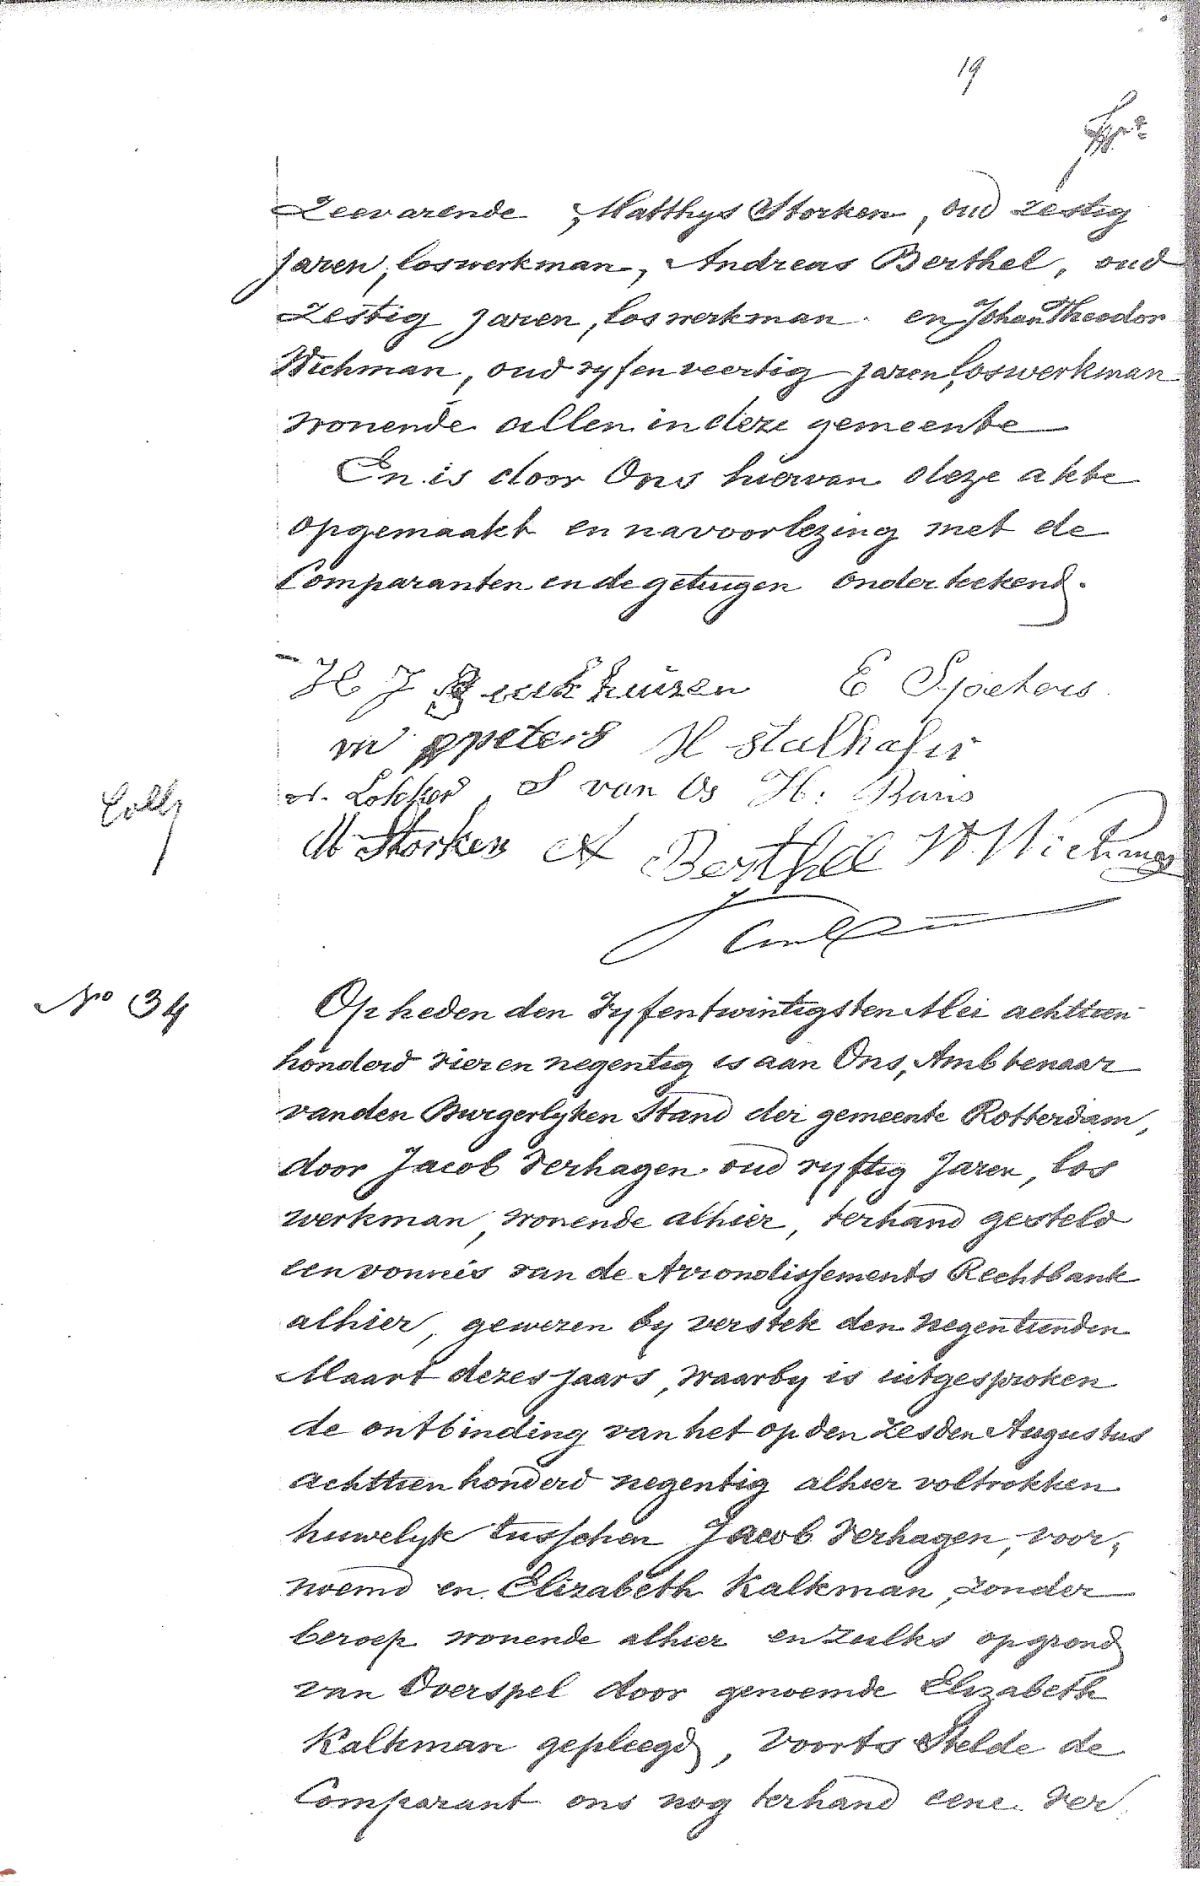 19
Zeevarende, Matthys Storken, oud zestig
jaren, loswerkman, Andreas Berthel, oud
zestig jaren, loswerkman en Johan Theodor
Wichman, oud vyfenveertig jaren, loswerkman
wonende allen in deze gemeente
En is door Ons hiervan deze akte
opgemaakt en na voorlezing met de
Comparanten en de getuigen onderteekend.
H J huizen E Speters
m ppeters H
Lokker, S van Os H. Buris
Coll
M Storken A Berthel W Wichman
No 34
Op heden den Vyfentwintigsten Mei achttien
honderd vier en negentig is aan Ons, Ambtenaar
van den Burgerlyken Stand der gemeente Rotterdam,
door Jacob Verhagen oud vyftig Jaren, los
werkman, wonende alhier, terhand gesteld
een vonnis van de Arrondissements Rechtbank
alhier, gewezen by verstek den negentienden
Maart dezes jaars, waarby is uitgesproken
de ontbinding van het op den zesden Augustus
achttien honderd negentig alhier voltrokken
huwelyk tusschen Jacob Verhagen, voor-
noemd en Elizabeth Kalkman, zonder
beroep wonende alhier en zulks op grond
van Overspel door genoemde Elizabeth
Kalkman gepleegd, voorts Stelde de
Comparant ons nog terhand eene ver